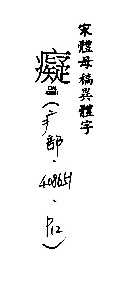 宋體母稿異體字
癡
(疒部．408651．P12)